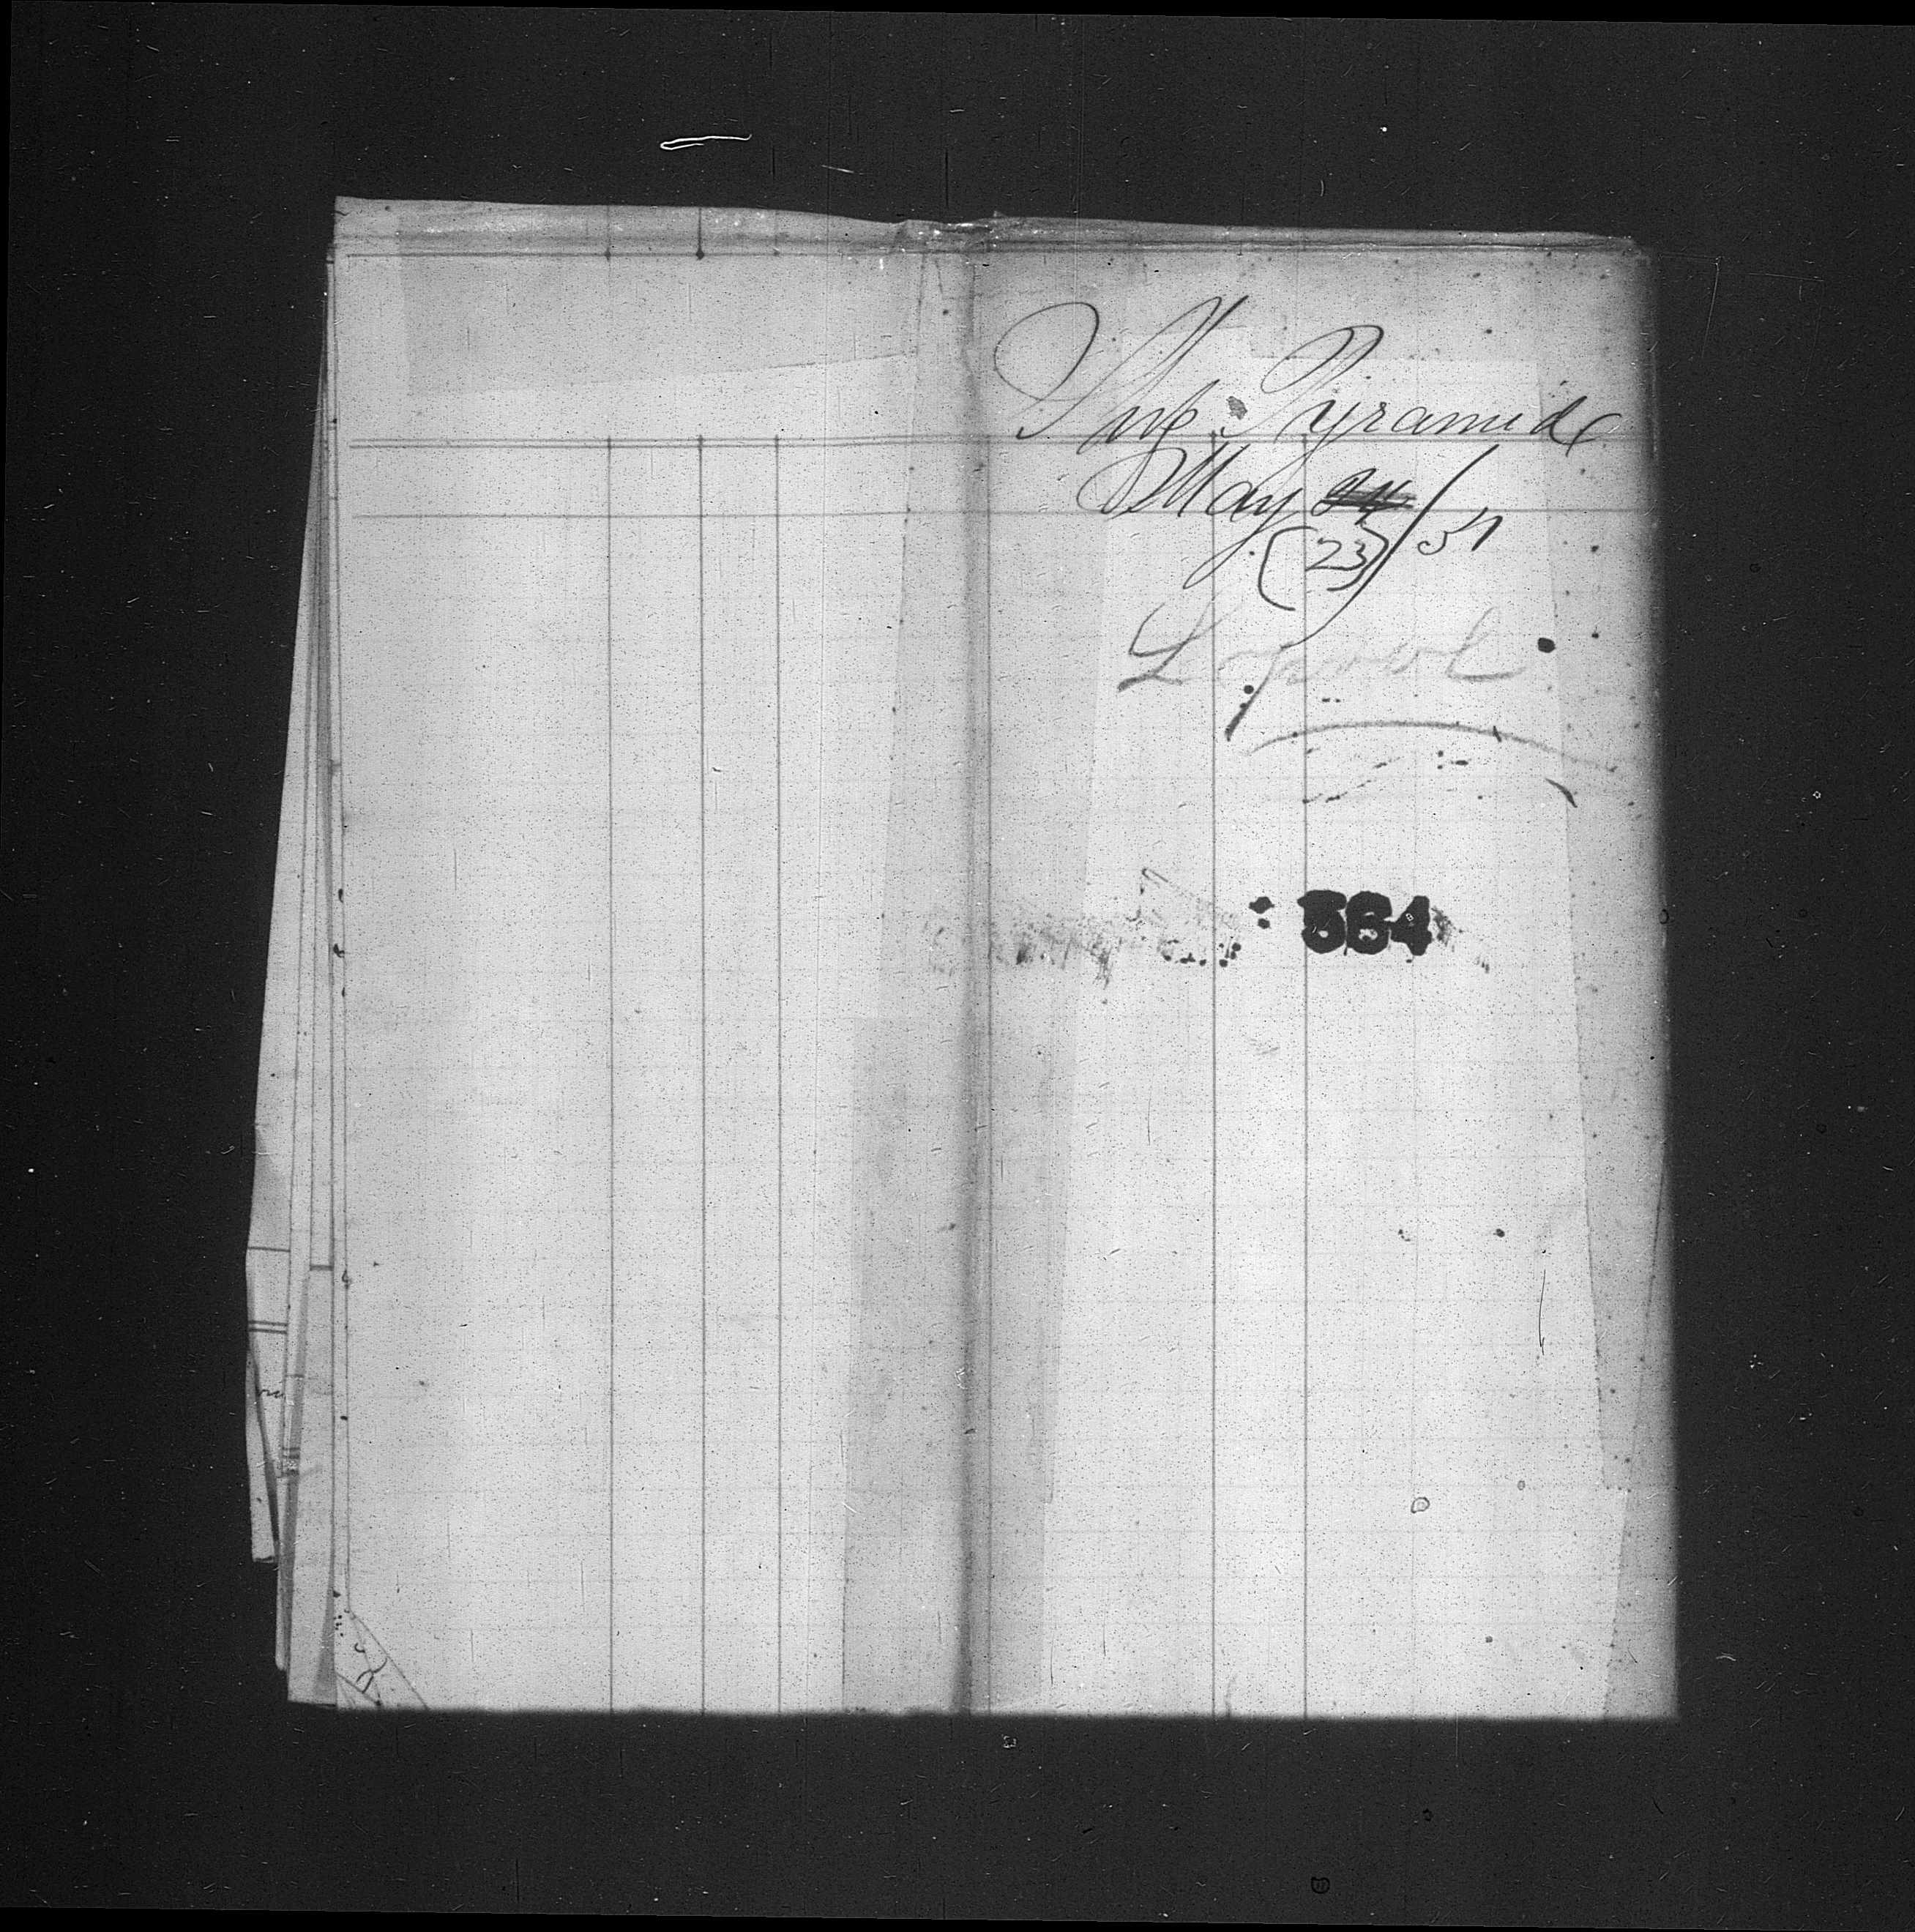 Ship Pyramid
May 24/51
(23)
L.pool
564